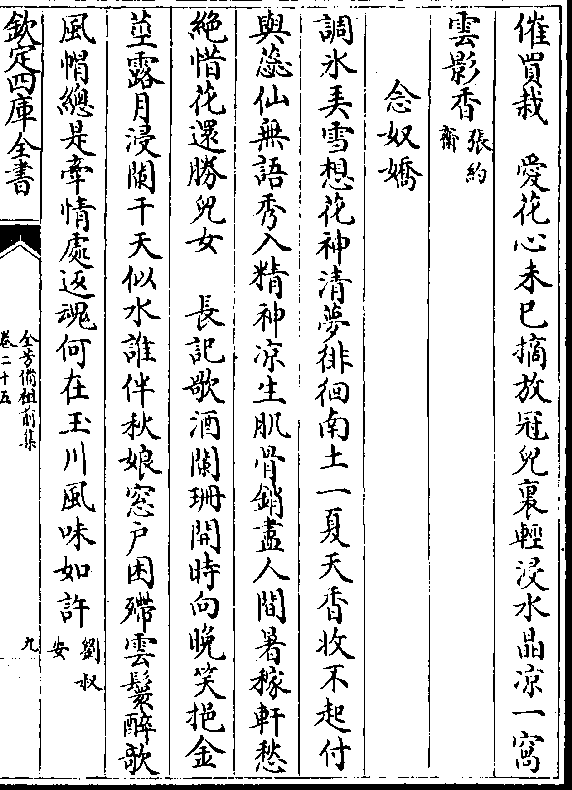 催買栽　愛花心未已摘放冠兒裏輕浸水晶凉一窩
雲影香張約齋
念奴嬌
調氷弄雪想花神清夢徘徊南土一夏天香收不起付
與蕊仙無語秀入精神凉生肌骨銷盡人間暑稼軒愁
絶惜花還勝兒女　長記歌酒闌珊開時向晚笑挹金
莖露月浸闌干天似水誰伴秋娘窓戶困殢雲鬟醉欹
風帽總是牽情處返魂何在玉川風味如許劉叔安
欽定四庫全書
全芳備祖前集
卷二十五
九